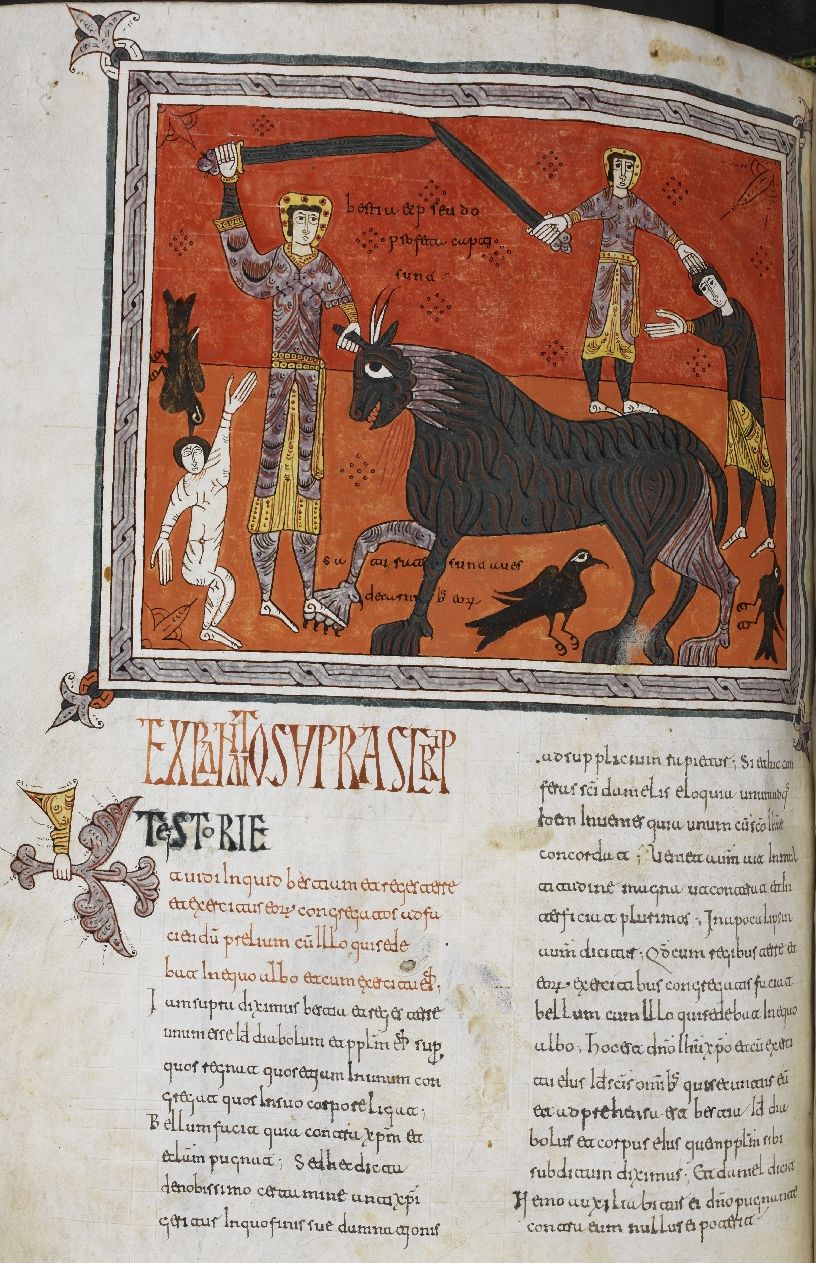 bestia et pseudo
profeta capta
sunt
saturate sunt aues
de carnibus eorum
EXPLANATIO SUPRA SCRIP
TE STORIE
Et uidi Inquid bestiam et reges terre
et exercitus eorꝝ congregatos ad fa
ciendū prelium cū Illo qui sede
bat In equo albo et cum exercitu eius;
Iam supra diximus bestia et reges terre
unum esse Id diabolum et pplm eius sup
quos regnat quos etiam In unum con
gregat quos In suo corpore ligat;
Bellum faciat quia contra xpm et
eclam pugnat; Sed hec dicta
de nobissimo certamine antixpi
geritur In quo finis sue damnationis
ad supplicium rapietur; Si et hic con
feras sci danielis eloquia unumidq
Idem Inuenies quia unum cū sco
concordat; Veniet autm ait In mul
titudine magna ut conterat et In
terficiat plurimos; In apocalipsin
autm dicitur; Qd cum regibus terre et
eorꝝ exercitibus congregatis faciat
bellum cum Illo qui sedebat In equo
albo; hoc est dno Ihu xpo et cū exerci
tu eius Id scis omibs qui secuntur eū
et adprehensa est bestia Id dia
bolus et corpus eius quem pplm sibi
subditum diximus; Et daniel dicit
Nemo auxiliabitur ei dno pugnante
contra eum nullus ei poterit